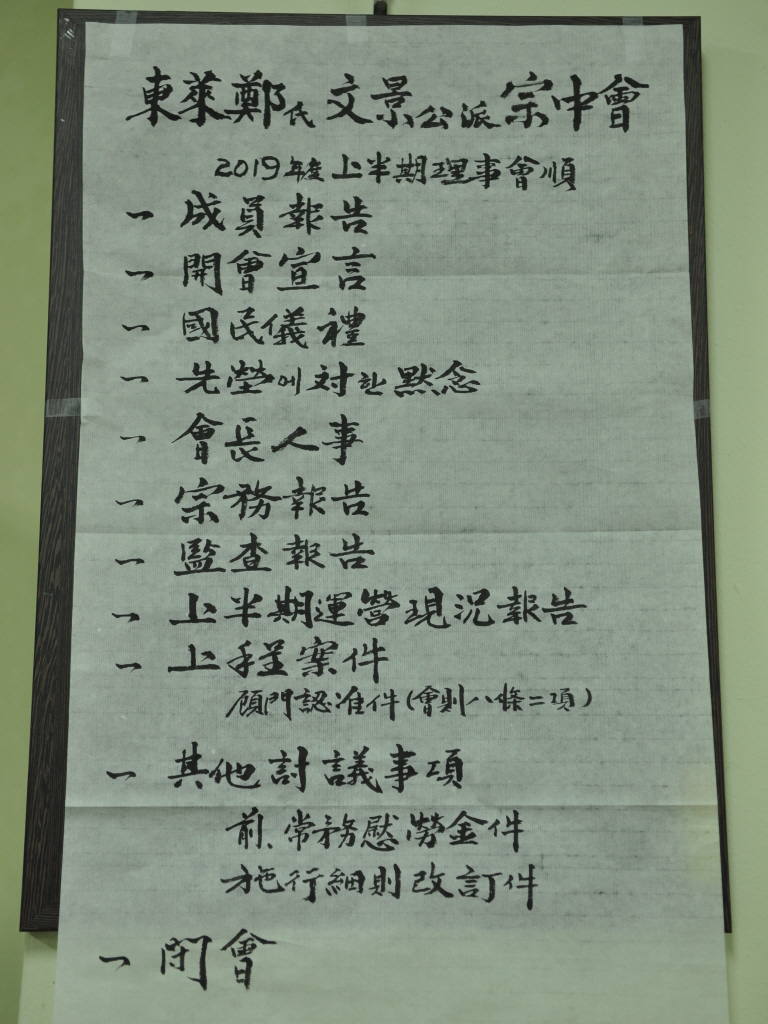 東萊鄭氏文景公派宗中會
2019年度上半期理事會順
一 成員報告
一 開會宣言
一 國民儀禮
一 先塋에 対한 默念
一 會長人事
一 宗務報告
一 監查報告
一 上半期運營現況報告
一 上程案件
顧門認准件(會則八條二項)
一 其他討議事項
前.常務慰勞金件
施行細則改訂件
一 閉會